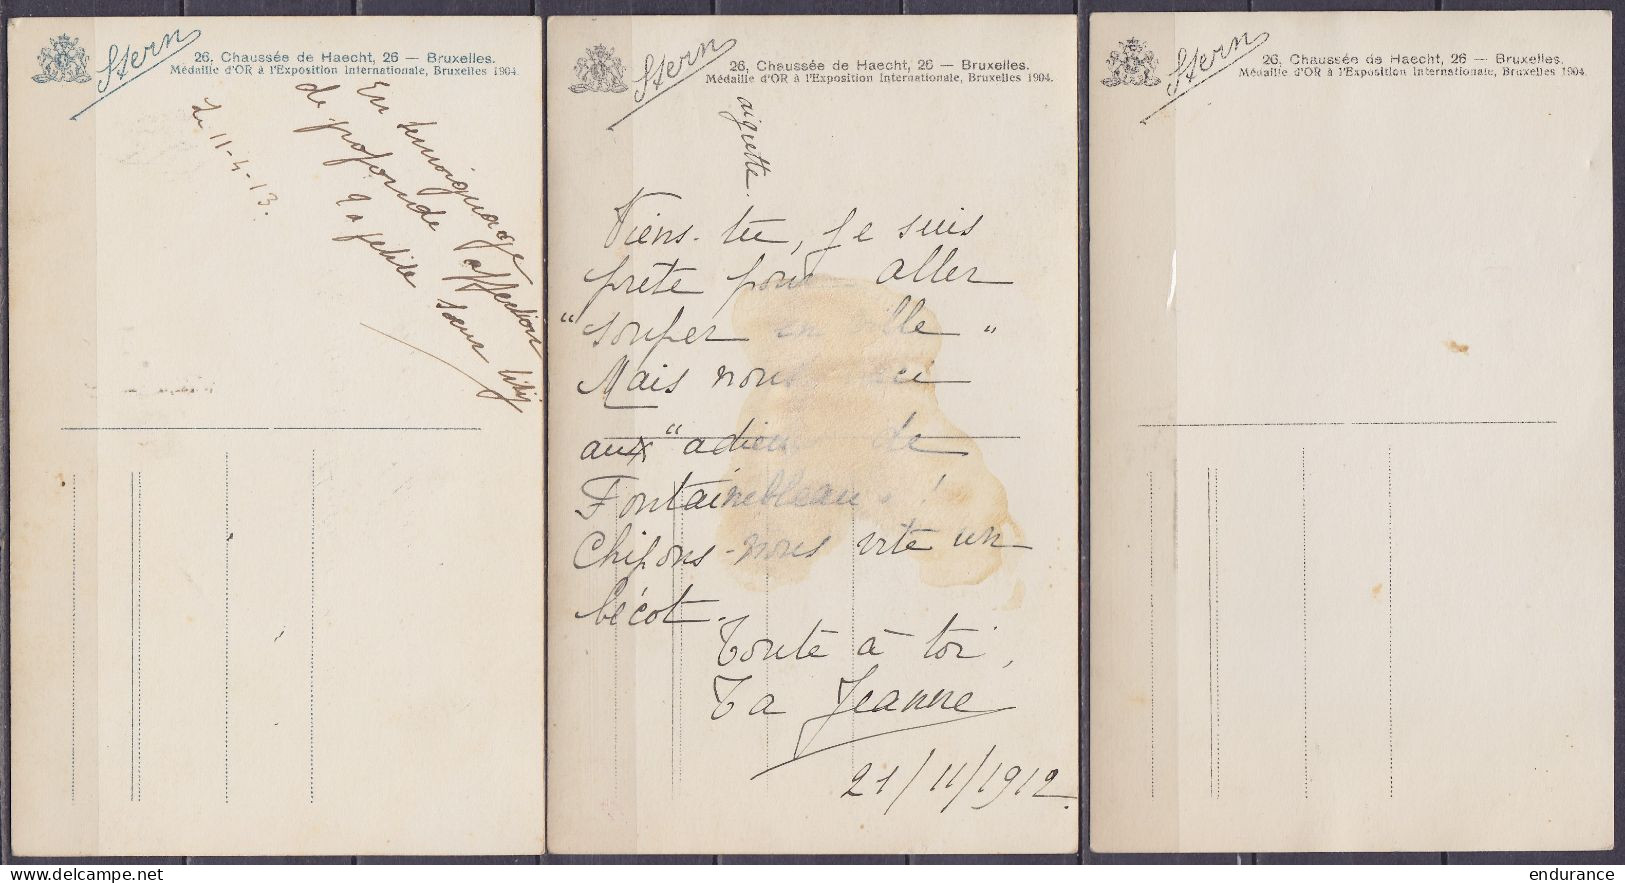 Stern
26, Chaussée de Haecht, 26 — Bruxelles.
Médaille d'OR à l'Exposition Internationale, Bruxelles 1904.
En temoignage
de profonde affection
ta petite sœur
Le 11-4-13.
Stern
26, Chaussée de Haecht, 26 — Bruxelles.
Médaille d'OR à l'Exposition Internationale, Bruxelles 1904.
aigrette.
Viens-tu, je suis
prete pour aller
"souper en ville"
Mais nous voici
aux "adieux de
Fontainebleau" !
Chipons-nous vite un
bécot.
Toute à toi,
Ta Jeanne
21/11/1912.
Stern
26, Chaussée de Haecht, 26 — Bruxelles.
Médaille d'OR à l'Exposition Internationale, Bruxelles 1904.
endurance